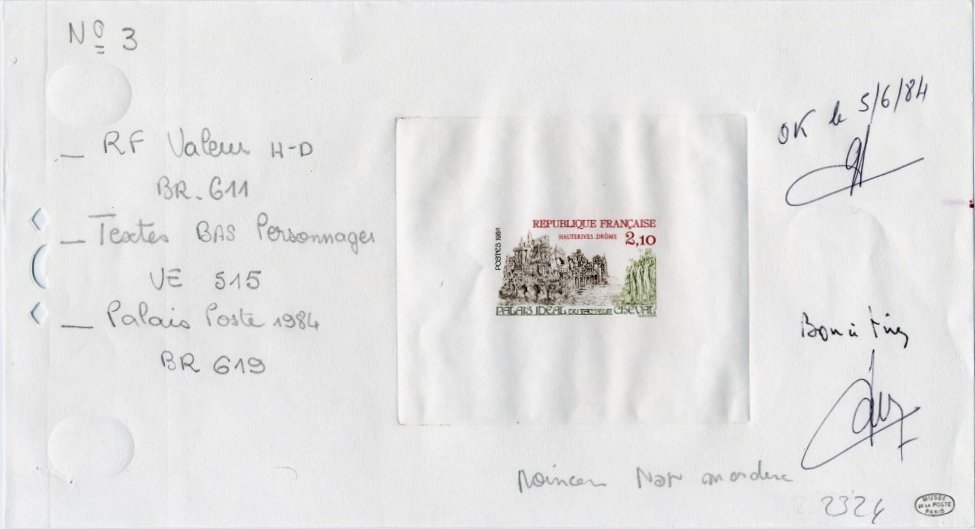 Nº 3
— RF Valeur H-D
BR. 611
— Textes BAS Personnages
VE 515
— Palais Poste 1984
BR 619
POSTES 1984
REPUBLIQUE FRANÇAISE
HAUTERIVES DRÔME 2,10
PALAIS IDEAL DU FACTEUR CHEVAL
OK le 5/6/84
Bon à tirer
2324
MUSÉE
DE LA POSTE
PARIS